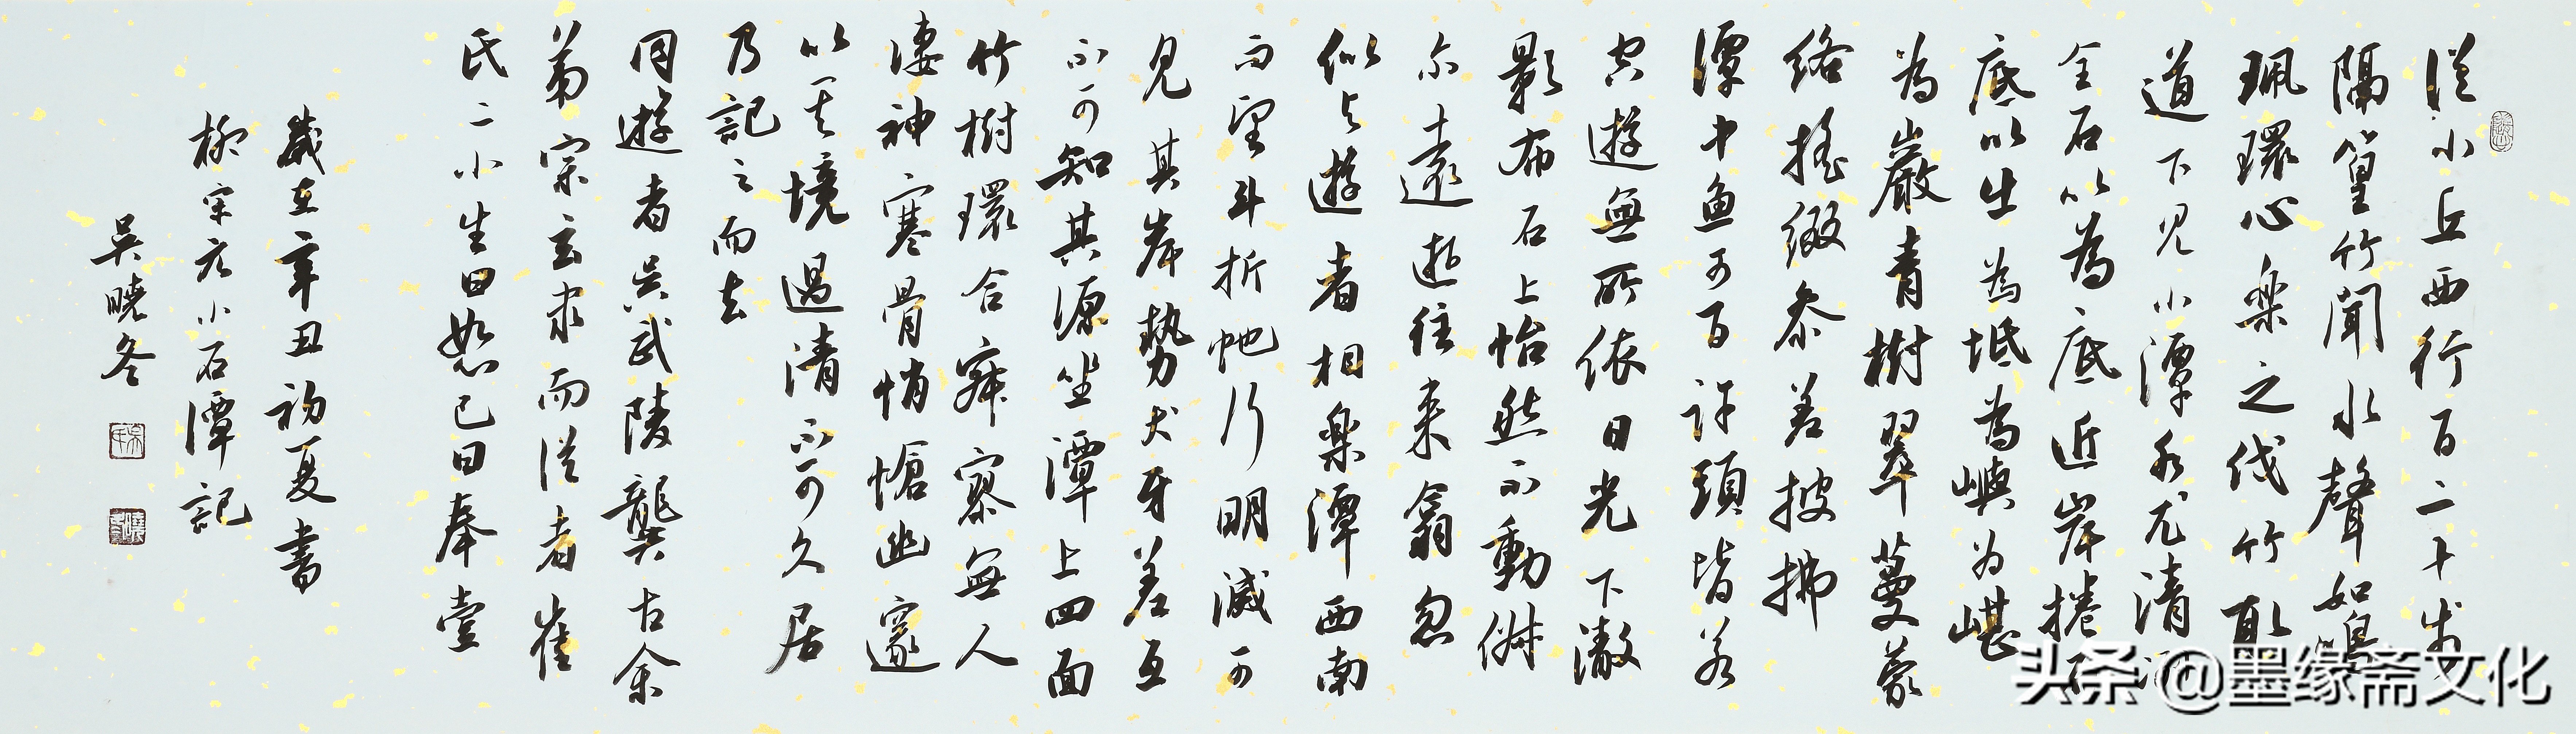 從小丘西行百二十步
隔篁竹聞水聲如鳴
珮環心楽之伐竹取
道下見小潭水尤清
全石以為底近岸捲石
底以出為坻為嶼为嵁
為巖青樹翠蔓蒙
絡搖綴参差披拂
潭中魚可百許頭皆若
空遊無所依日光下澈
影布石上怡然不動俶
尔遠逝往来翕忽
似与遊者相楽潭西南
而望斗折蛇行明滅可
見其岸勢犬牙差互
不可知其源坐潭上四面
竹樹環合寂寥無人
淒神寒骨悄愴幽邃
以其境過清不可久居
乃記之而去
同遊者吳武陵龔古余
弟宗玄隶而從者崔
氏二小生曰恕己曰奉壹
歲在辛丑初夏書
柳宗元小石潭記
吳曉冬
头条 @墨缘斋文化